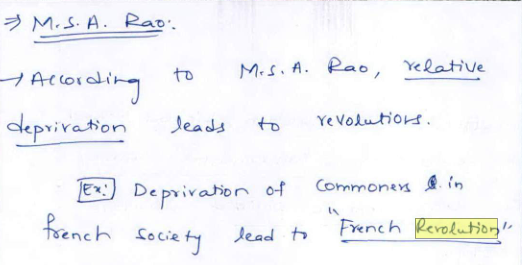 ⇒ M.S.A. Rao:
→ According to M.S.A. Rao, relative
deprivation leads to revolutions.
Ex: Deprivation of commoners in
french society lead to "French Revolution"